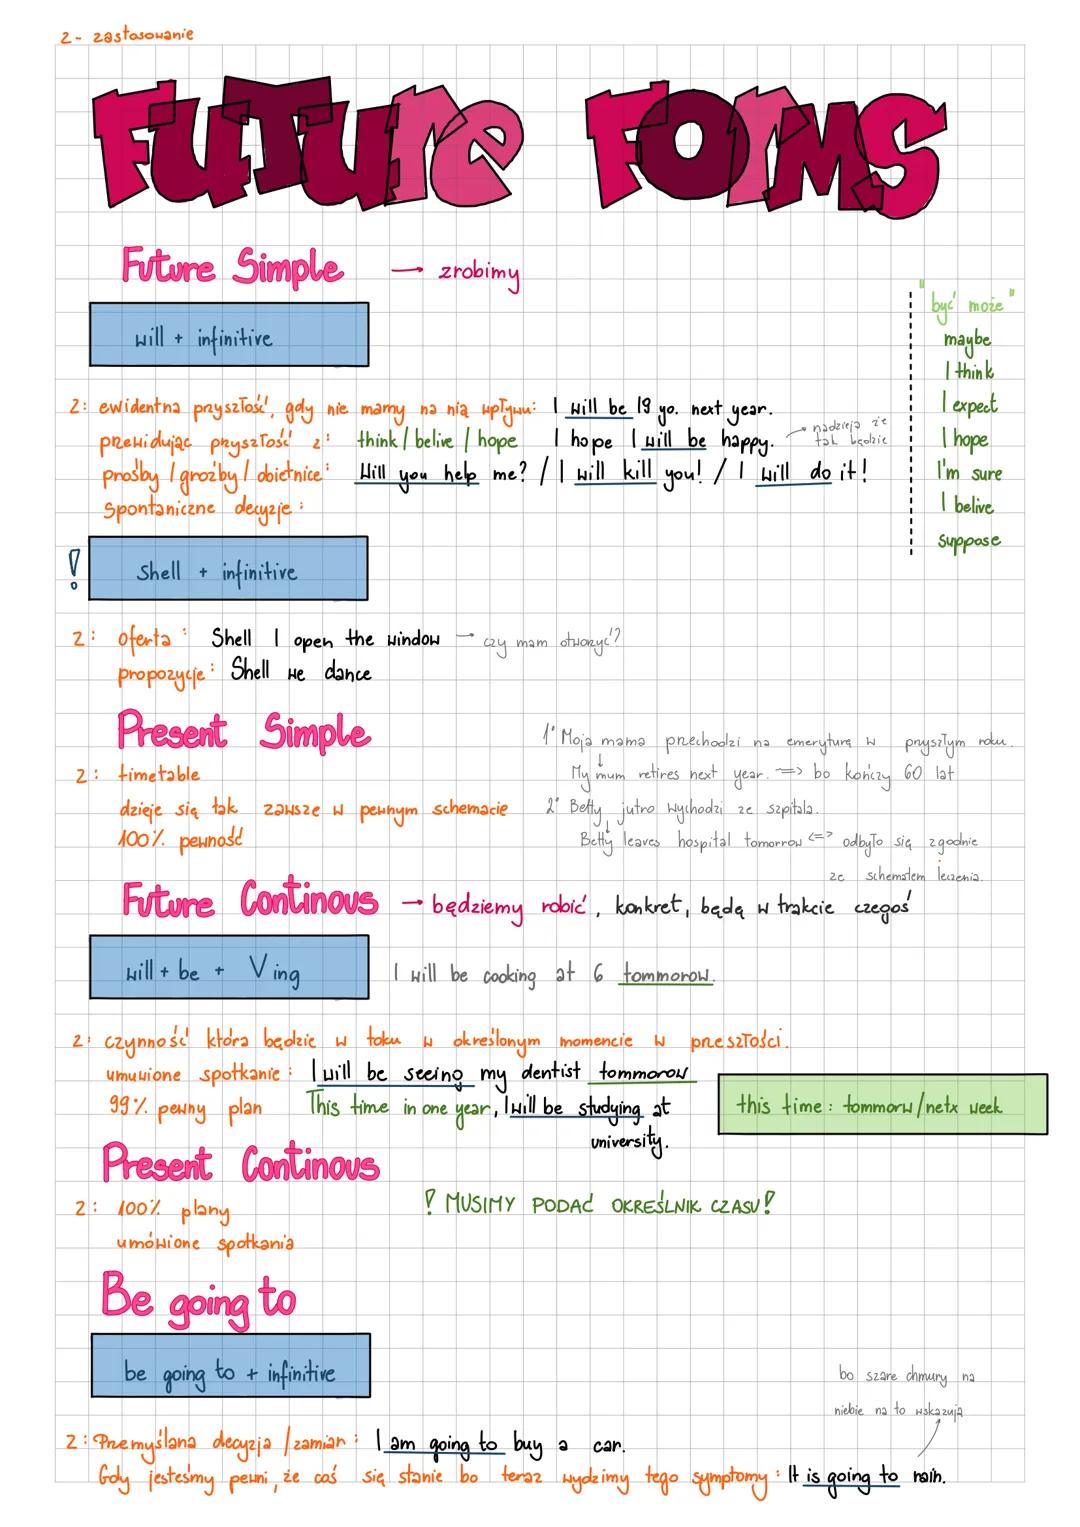 2 - zastosowanie
FUTUre FOrMS
Future Simple → zrobimy
will + infinitive
"być może"
maybe
I think
I expect
I hope
I'm sure
I belive
suppose
2: ewidentna przyszłość, gdy nie mamy na nią wpływu: I will be 19 yo. next year.
przewidując przyszłość z: think / belive / hope I hope I will be happy. → nadzieja że tak będzie
prośby / groźby / obietnice: Will you help me? / I will kill you! / I will do it!
Spontaniczne decyzje:
! Shell + infinitive
2: oferta: Shell I open the window → czy mam otworzyć?
propozycje: Shell we dance
Present Simple
2: timetable
dzieje się tak zawsze w pewnym schemacie
100% pewność
1° Moja mama przechodzi na emeryturę w przyszłym roku.
↓
My mum retires next year. => bo kończy 60 lat
2° Betty jutro wychodzi ze szpitala.
↓
Betty leaves hospital tomorrow <=> odbyło się zgodnie
ze schematem leczenia.
Future Continous → będziemy robić, konkret, będą w trakcie czegoś
will + be + Ving I will be cooking at 6 tommorow.
2: czynność która będzie w toku w określonym momencie w przeszłości.
umuwione spotkanie: I will be seeing my dentist tommorow
99% pewny plan This time in one year, I will be studying at
university.
this time: tommorw/netx week
Present Continous
2: 100% plany
umówione spotkania
! MUSIMY PODAĆ OKREŚLNIK CZASU!
Be going to
be going to + infinitive
bo szare chmury na
niebie na to wskazują
2: Przemyślana decyzja / zamian: I am going to buy a car.
Gdy jesteśmy pewni, że coś się stanie bo teraz wydzimy tego symptomy: It is going to rain.